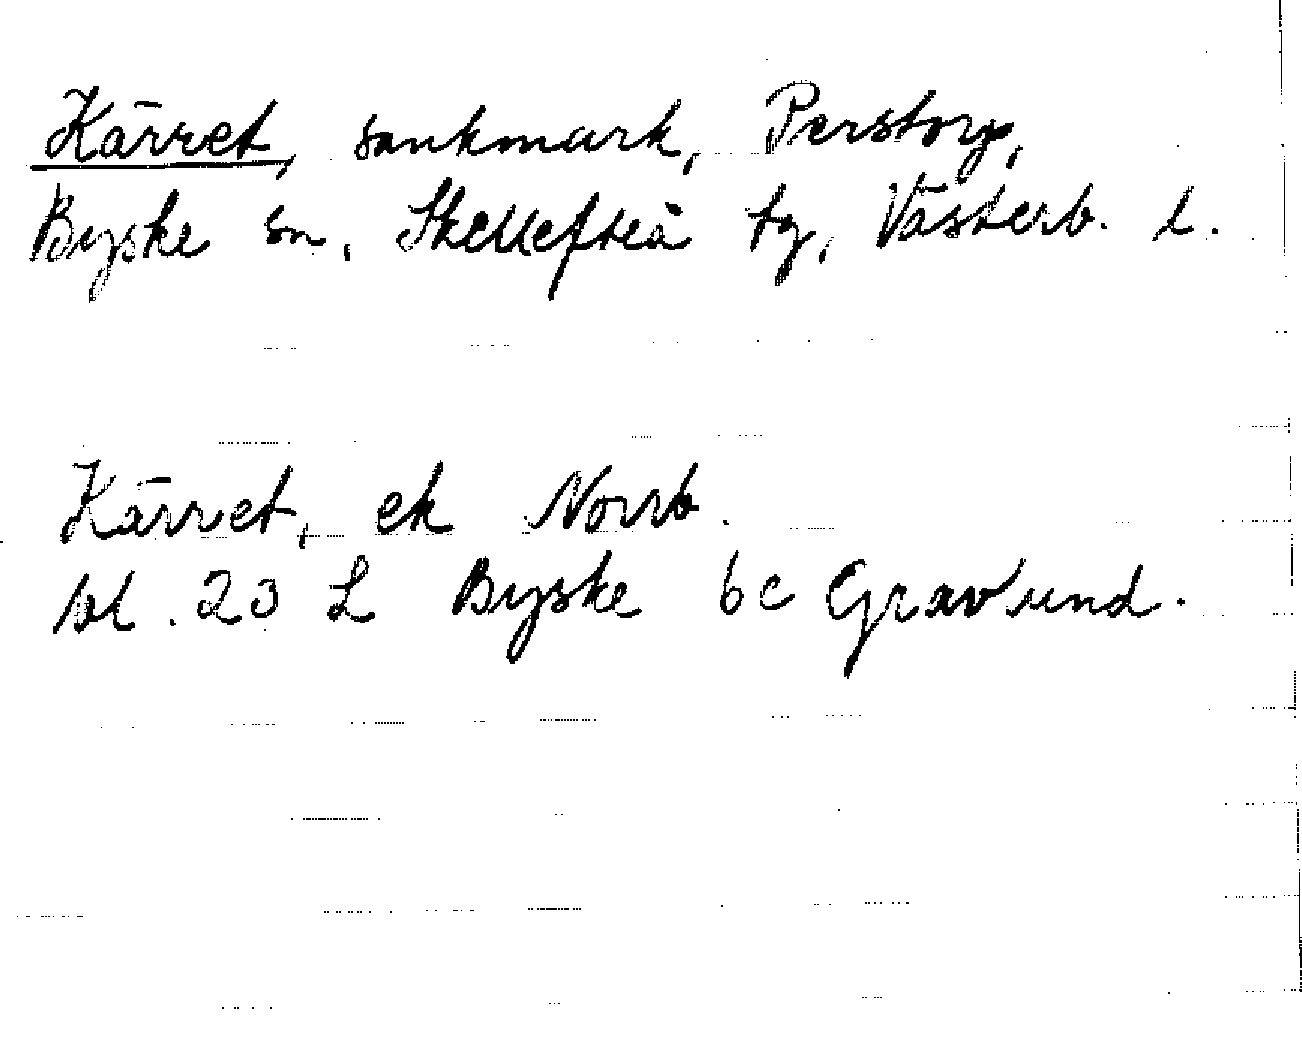 Kärret, sankmark, Perstorp,
Byske sn, Skellefteå tg, Västerb. l.
Kärret, ek Norrb.
bl. 23 L Byske 6c Gravsund.